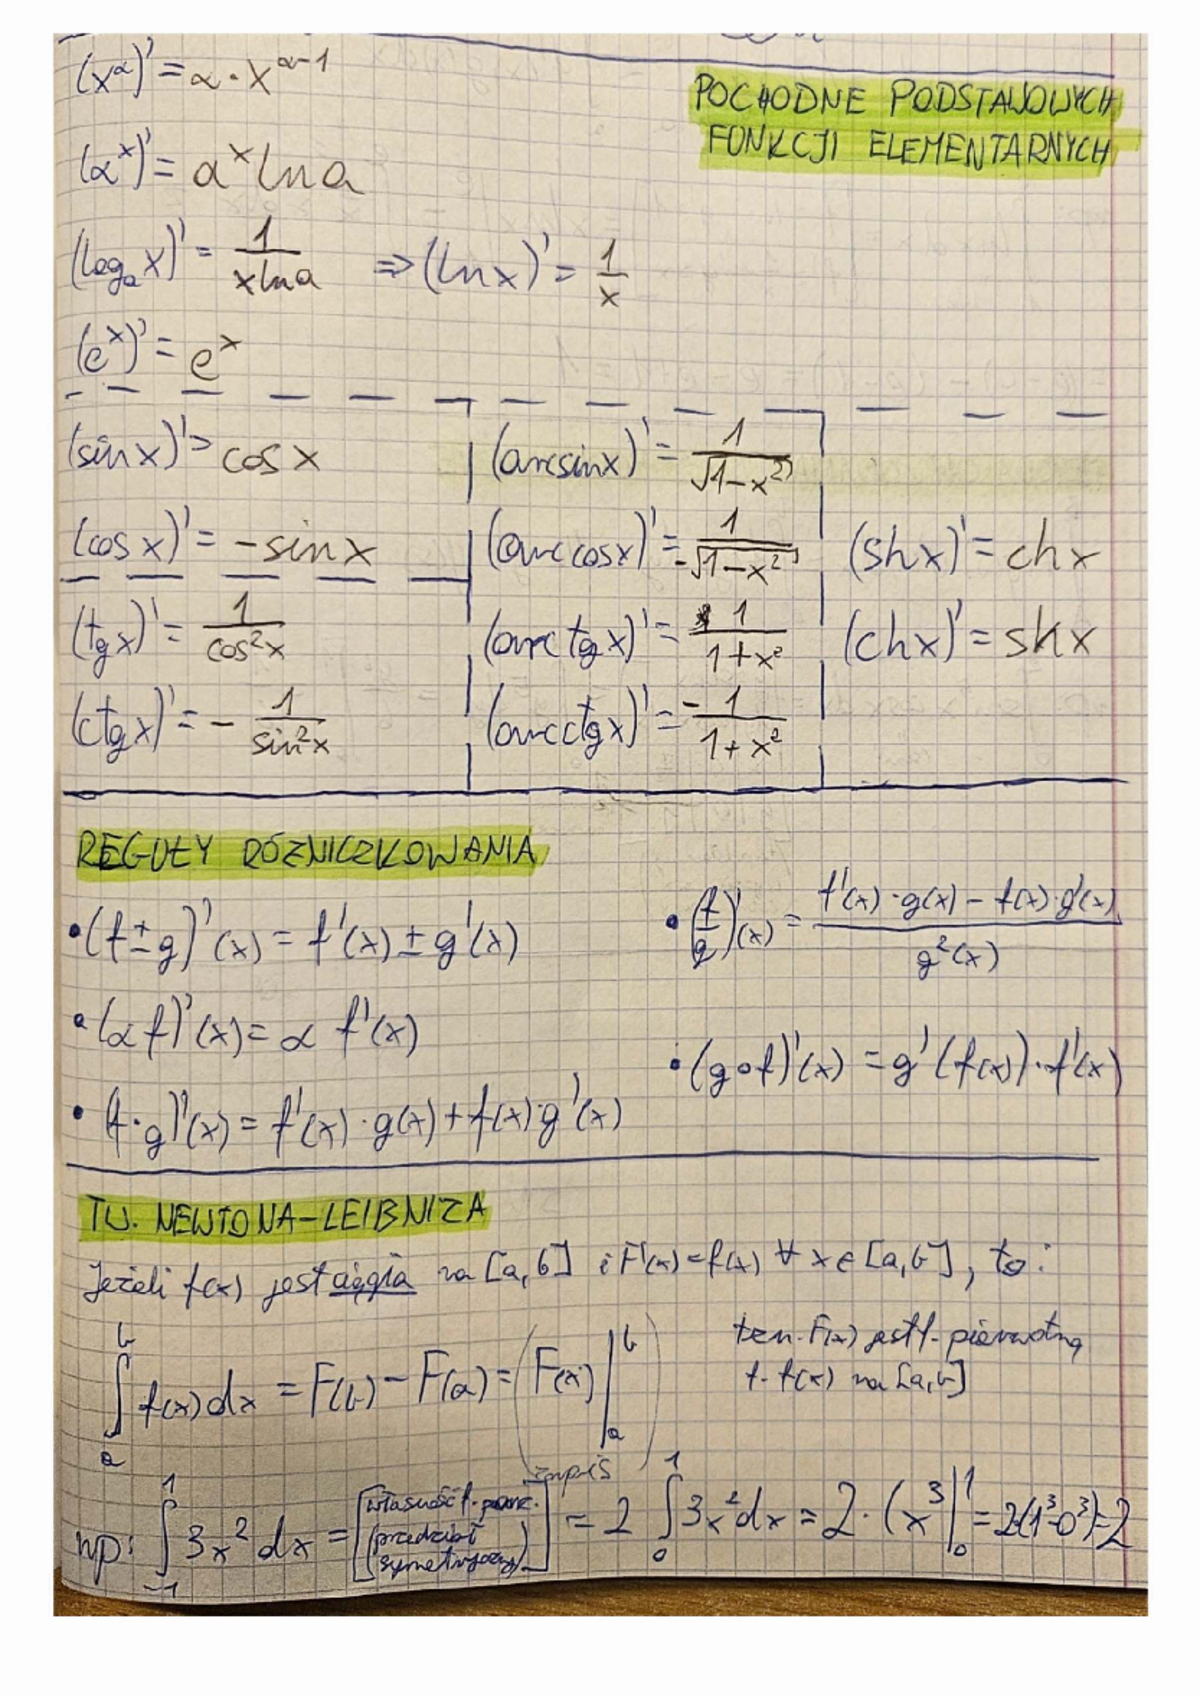 (x^α)' = α · x^(α-1)
POCHODNE PODSTAWOWYCH
FUNKCJI ELEMENTARNYCH
(a^x)' = a^x ln a
(log_a x)' = 1/(x ln a) ⇒ (ln x)' = 1/x
(e^x)' = e^x
(sin x)' = cos x
(cos x)' = - sin x
(tg x)' = 1/cos²x
(ctg x)' = - 1/sin²x
(arcsin x)' = 1/√(1-x²)
(arc cos x)' = 1/-√(1-x²)
(arc tg x)' = 1/(1+x²)
(arcctg x)' = -1/(1+x²)
(sh x)' = ch x
(ch x)' = sh x
REGUŁY RÓŻNICZKOWANIA
• (f ± g)'(x) = f'(x) ± g'(x)
• (α f)'(x) = α f'(x)
• (f · g)'(x) = f'(x) · g(x) + f(x) · g'(x)
• (f/g)'(x) = (f'(x) · g(x) - f(x) · g'(x))/g²(x)
• (g ∘ f)'(x) = g'(f(x)) · f'(x)
TW. NEWTONA-LEIBNIZA
Jeżeli f(x) jest ciągła na [a, b] i F'(x) = f(x) ∀ x ∈ [a, b], to:
∫_a^b f(x) dx = F(b) - F(a) = (F(x)|_a^b)
zapis
tzn. F(x) jest f. pierwotną
f. f(x) na [a, b]
np: ∫_-1^1 3x² dx = [własność f. parz.
(przedział
symetryczny)] = 2 ∫_0^1 3x² dx = 2 · (x³|_0^1 = 2(1³-0³) = 2